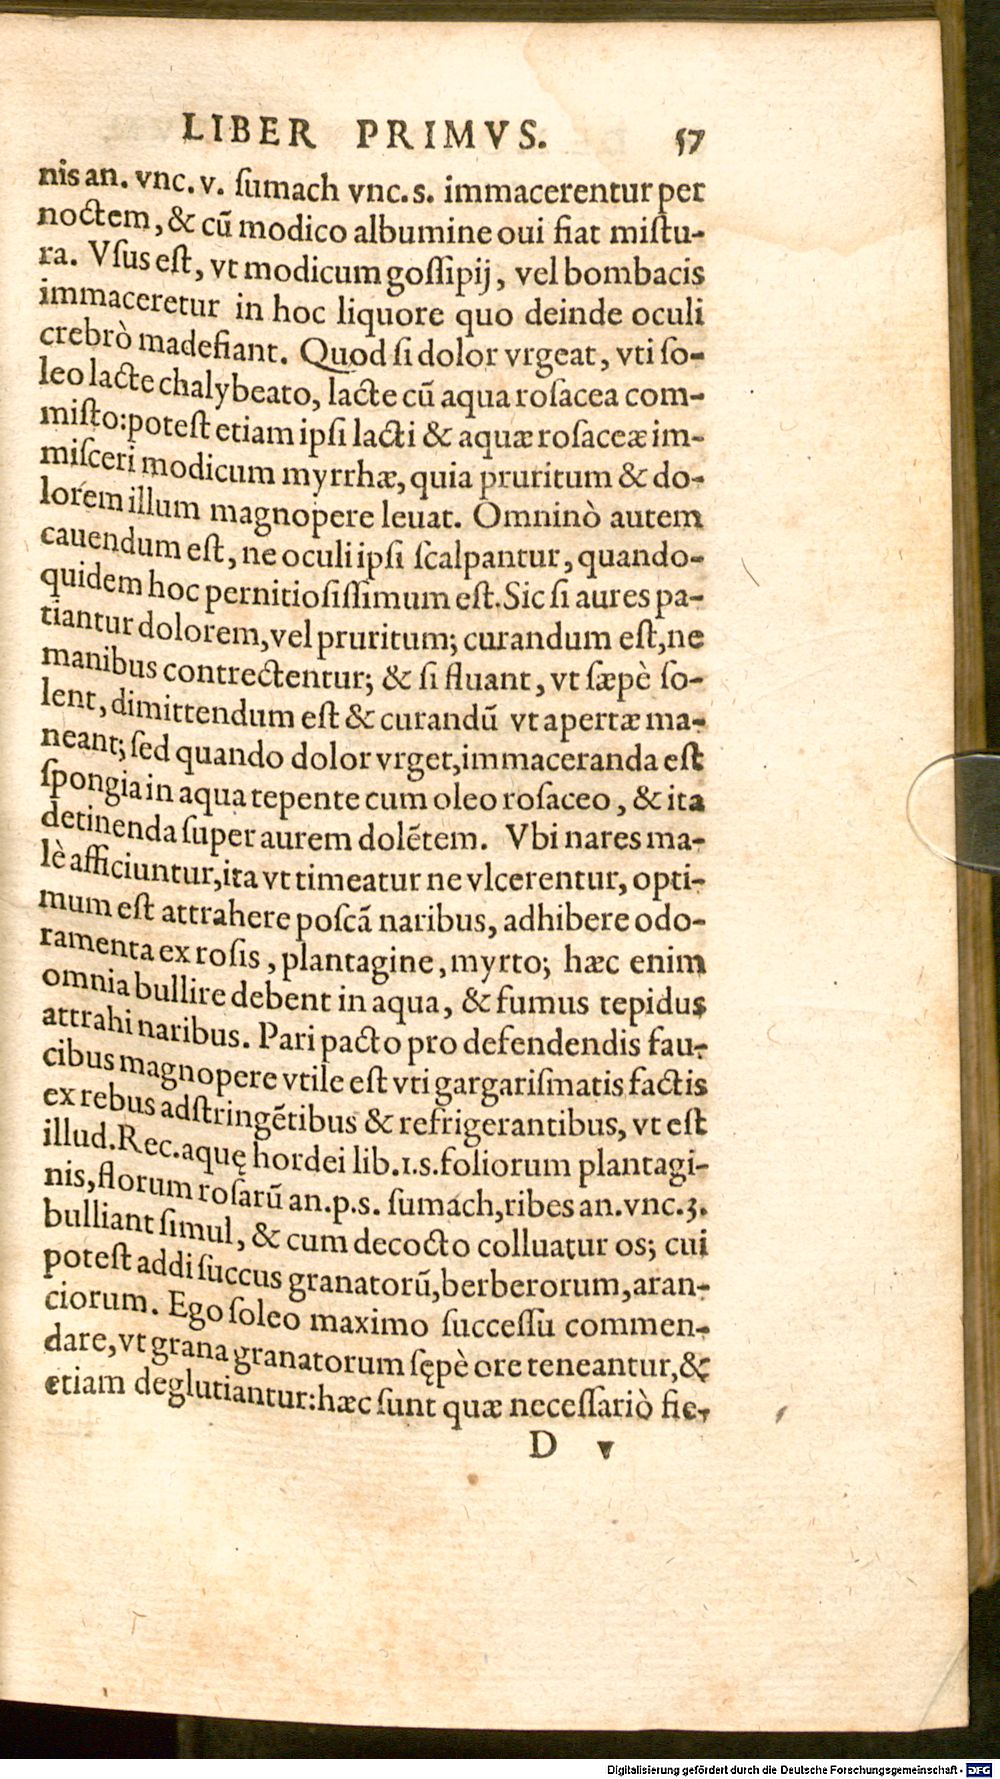 LIBER PRIMVS. 57
nis an. vnc. v. ſumach vnc. s. immacerentur per
noctem, & cū modico albumine oui fiat miſtu-
ra. Vſus eſt, vt modicum goſſipij, vel bombacis
immaceretur in hoc liquore quo deinde oculi
crebrò madefiant. Quod ſi dolor vrgeat, vti ſo-
leo lacte chalybeato, lacte cū aqua roſacea com-
miſto: poteſt etiam ipſi lacti & aquæ roſaceæ im-
miſceri modicum myrrhæ, quia pruritum & do-
lorem illum magnopere leuat. Omninò autem
cauendum eſt, ne oculi ipſi ſcalpantur, quando-
quidem hoc pernitioſiſſimum eſt. Sic ſi aures pa-
tiantur dolorem, vel pruritum; curandum eſt, ne
manibus contrectentur; & ſi fluant, vt ſæpè ſo-
lent, dimittendum eſt & curandū vt apertæ ma-
neant; ſed quando dolor vrget, immaceranda eſt
ſpongia in aqua tepente cum oleo roſaceo, & ita
detinenda ſuper aurem dolētem. Vbi nares ma-
lè afficiuntur, ita vt timeatur ne vlcerentur, opti-
mum eſt attrahere poſcā naribus, adhibere odo-
ramenta ex roſis, plantagine, myrto; hæc enim
omnia bullire debent in aqua, & fumus tepidus
attrahi naribus. Pari pacto pro defendendis fau-
cibus magnopere vtile eſt vti gargariſmatis factis
ex rebus adſtringētibus & refrigerantibus, vt eſt
illud. Rec. aquę hordei lib. 1. s. foliorum plantagi-
nis, florum roſarū an. p. s. ſumach, ribes an. vnc. 3.
bulliant ſimul, & cum decocto colluatur os; cui
poteſt addi ſuccus granatorū, berberorum, aran-
ciorum. Ego ſoleo maximo ſucceſſu commen-
dare, vt grana granatorum ſępè ore teneantur, &
etiam deglutiantur: hæc ſunt quæ neceſſariò fie-
D v
Digitalisierung gefördert durch die Deutsche Forschungsgemeinschaft - DFG